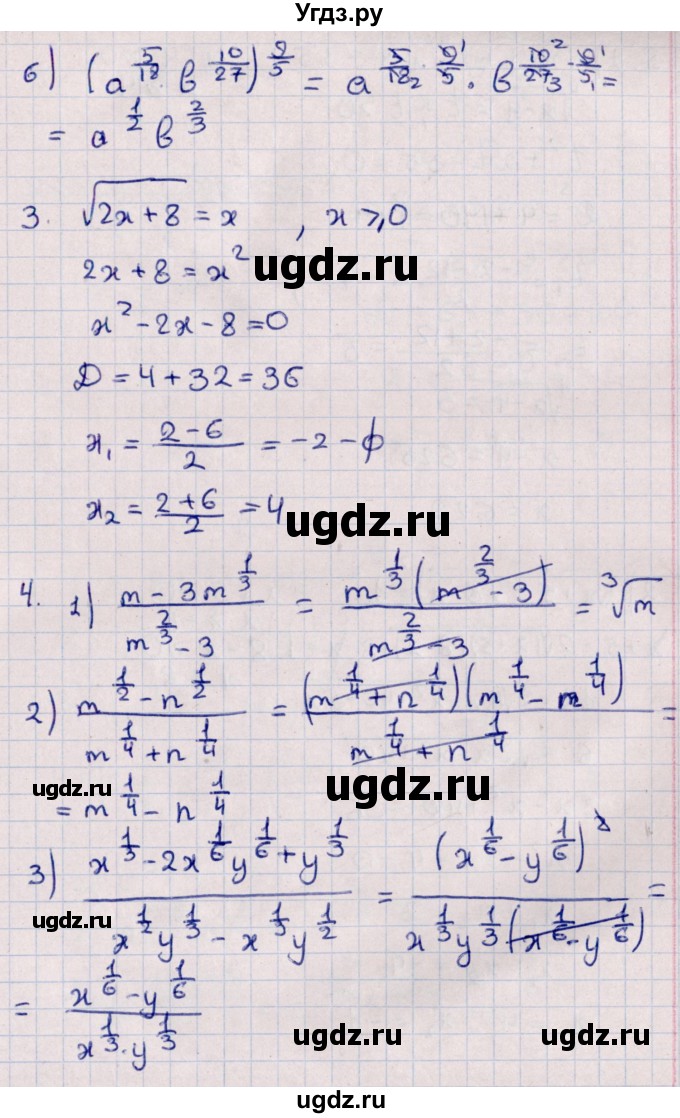 Угдз.ру
6) (a^(5/18) · b^(10/27))^(9/5) = a^(5/18 · 9/5) · b^(10/27 · 9/5) =
= a^(1/2) b^(2/3)
3. √(2x+8) = x , x ⩾ 0
2x + 8 = x²
ugdz.ru
x² - 2x - 8 = 0
D = 4 + 32 = 36
x₁ = (2 - 6)/2 = -2 - ф
x₂ = (2 + 6)/2 = 4
ugdz.ru
4. 1) (m - 3m^(1/3))/(m^(2/3) - 3) = (m^(1/3)(m^(2/3) - 3))/(m^(2/3) - 3) = ³√m
2) (m^(1/2) - n^(1/2))/(m^(1/4) + n^(1/4)) = ((m^(1/4) + n^(1/4))(m^(1/4) - m^(1/4)))/(m^(1/4) + n^(1/4)) =
ugdz.ru ugdz.ru
= m^(1/4) - n^(1/4)
3) (x^(1/3) - 2x^(1/6)y^(1/6) + y^(1/3))/(x^(1/2)y^(1/3) - x^(1/3)y^(1/2)) = (x^(1/6) - y^(1/6))²/(x^(1/3)y^(1/3)(x^(1/6) - y^(1/6))) =
ugdz.ru ugdz.ru
= (x^(1/6) - y^(1/6))/(x^(1/3) · y^(1/3))
ugdz.ru ugdz.ru
ugdz.ru